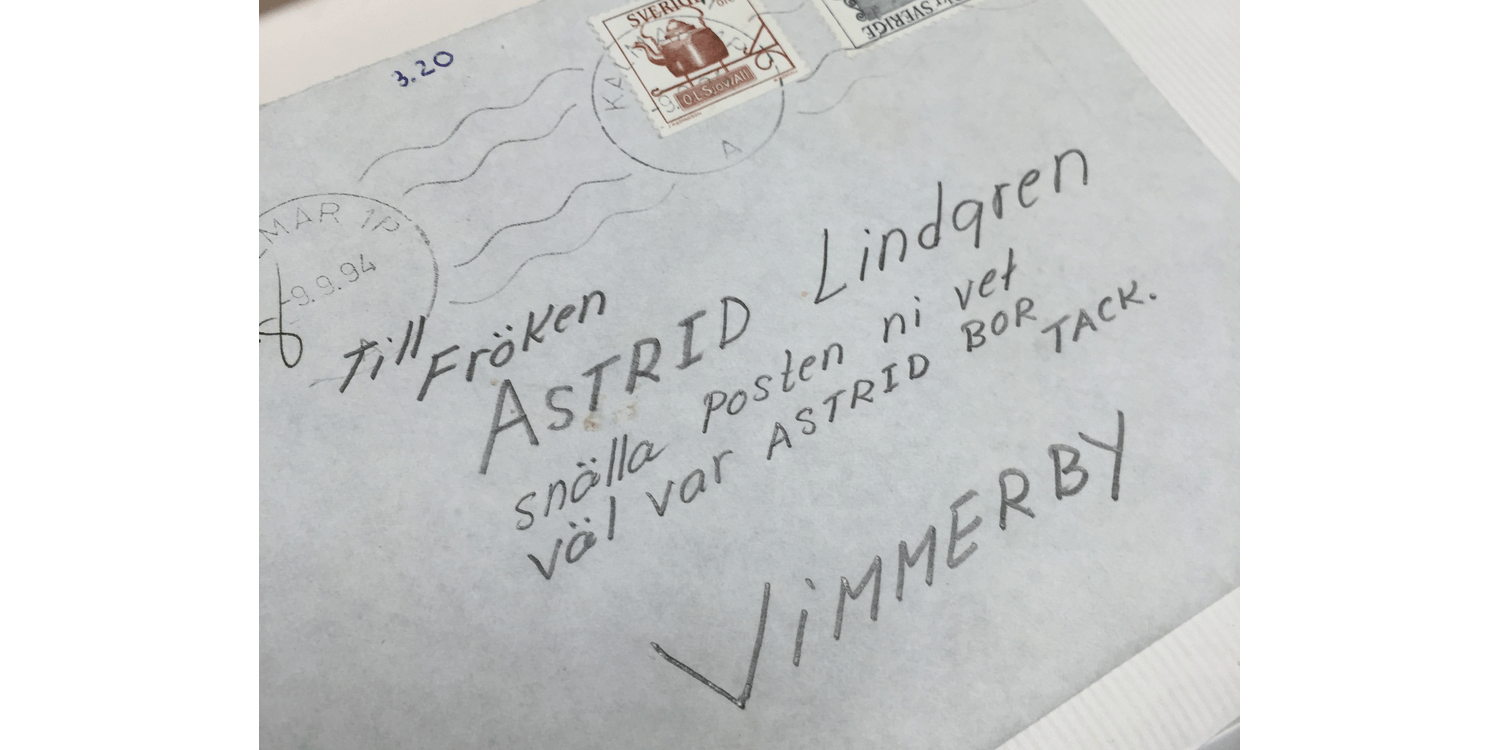 3.20
SVERIGE
OLSjöv/All
SVERIGE
KA
-9.
A
LMAR 1P
-9.9.94
Till Fröken
ASTRID Lindgren
snälla posten ni vet
väl var ASTRID BOR TACK.
VIMMERBY